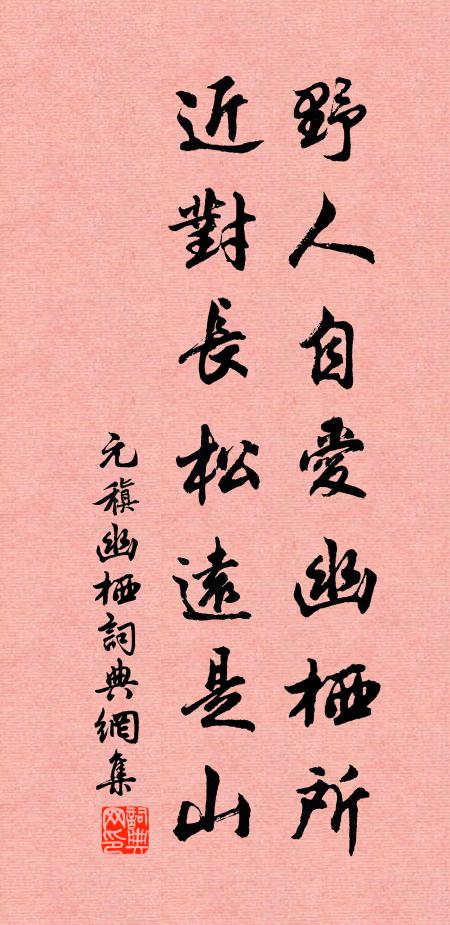 野人自愛幽栖所
近對長松遠是山
元稹幽栖詞典網集
詞典网印